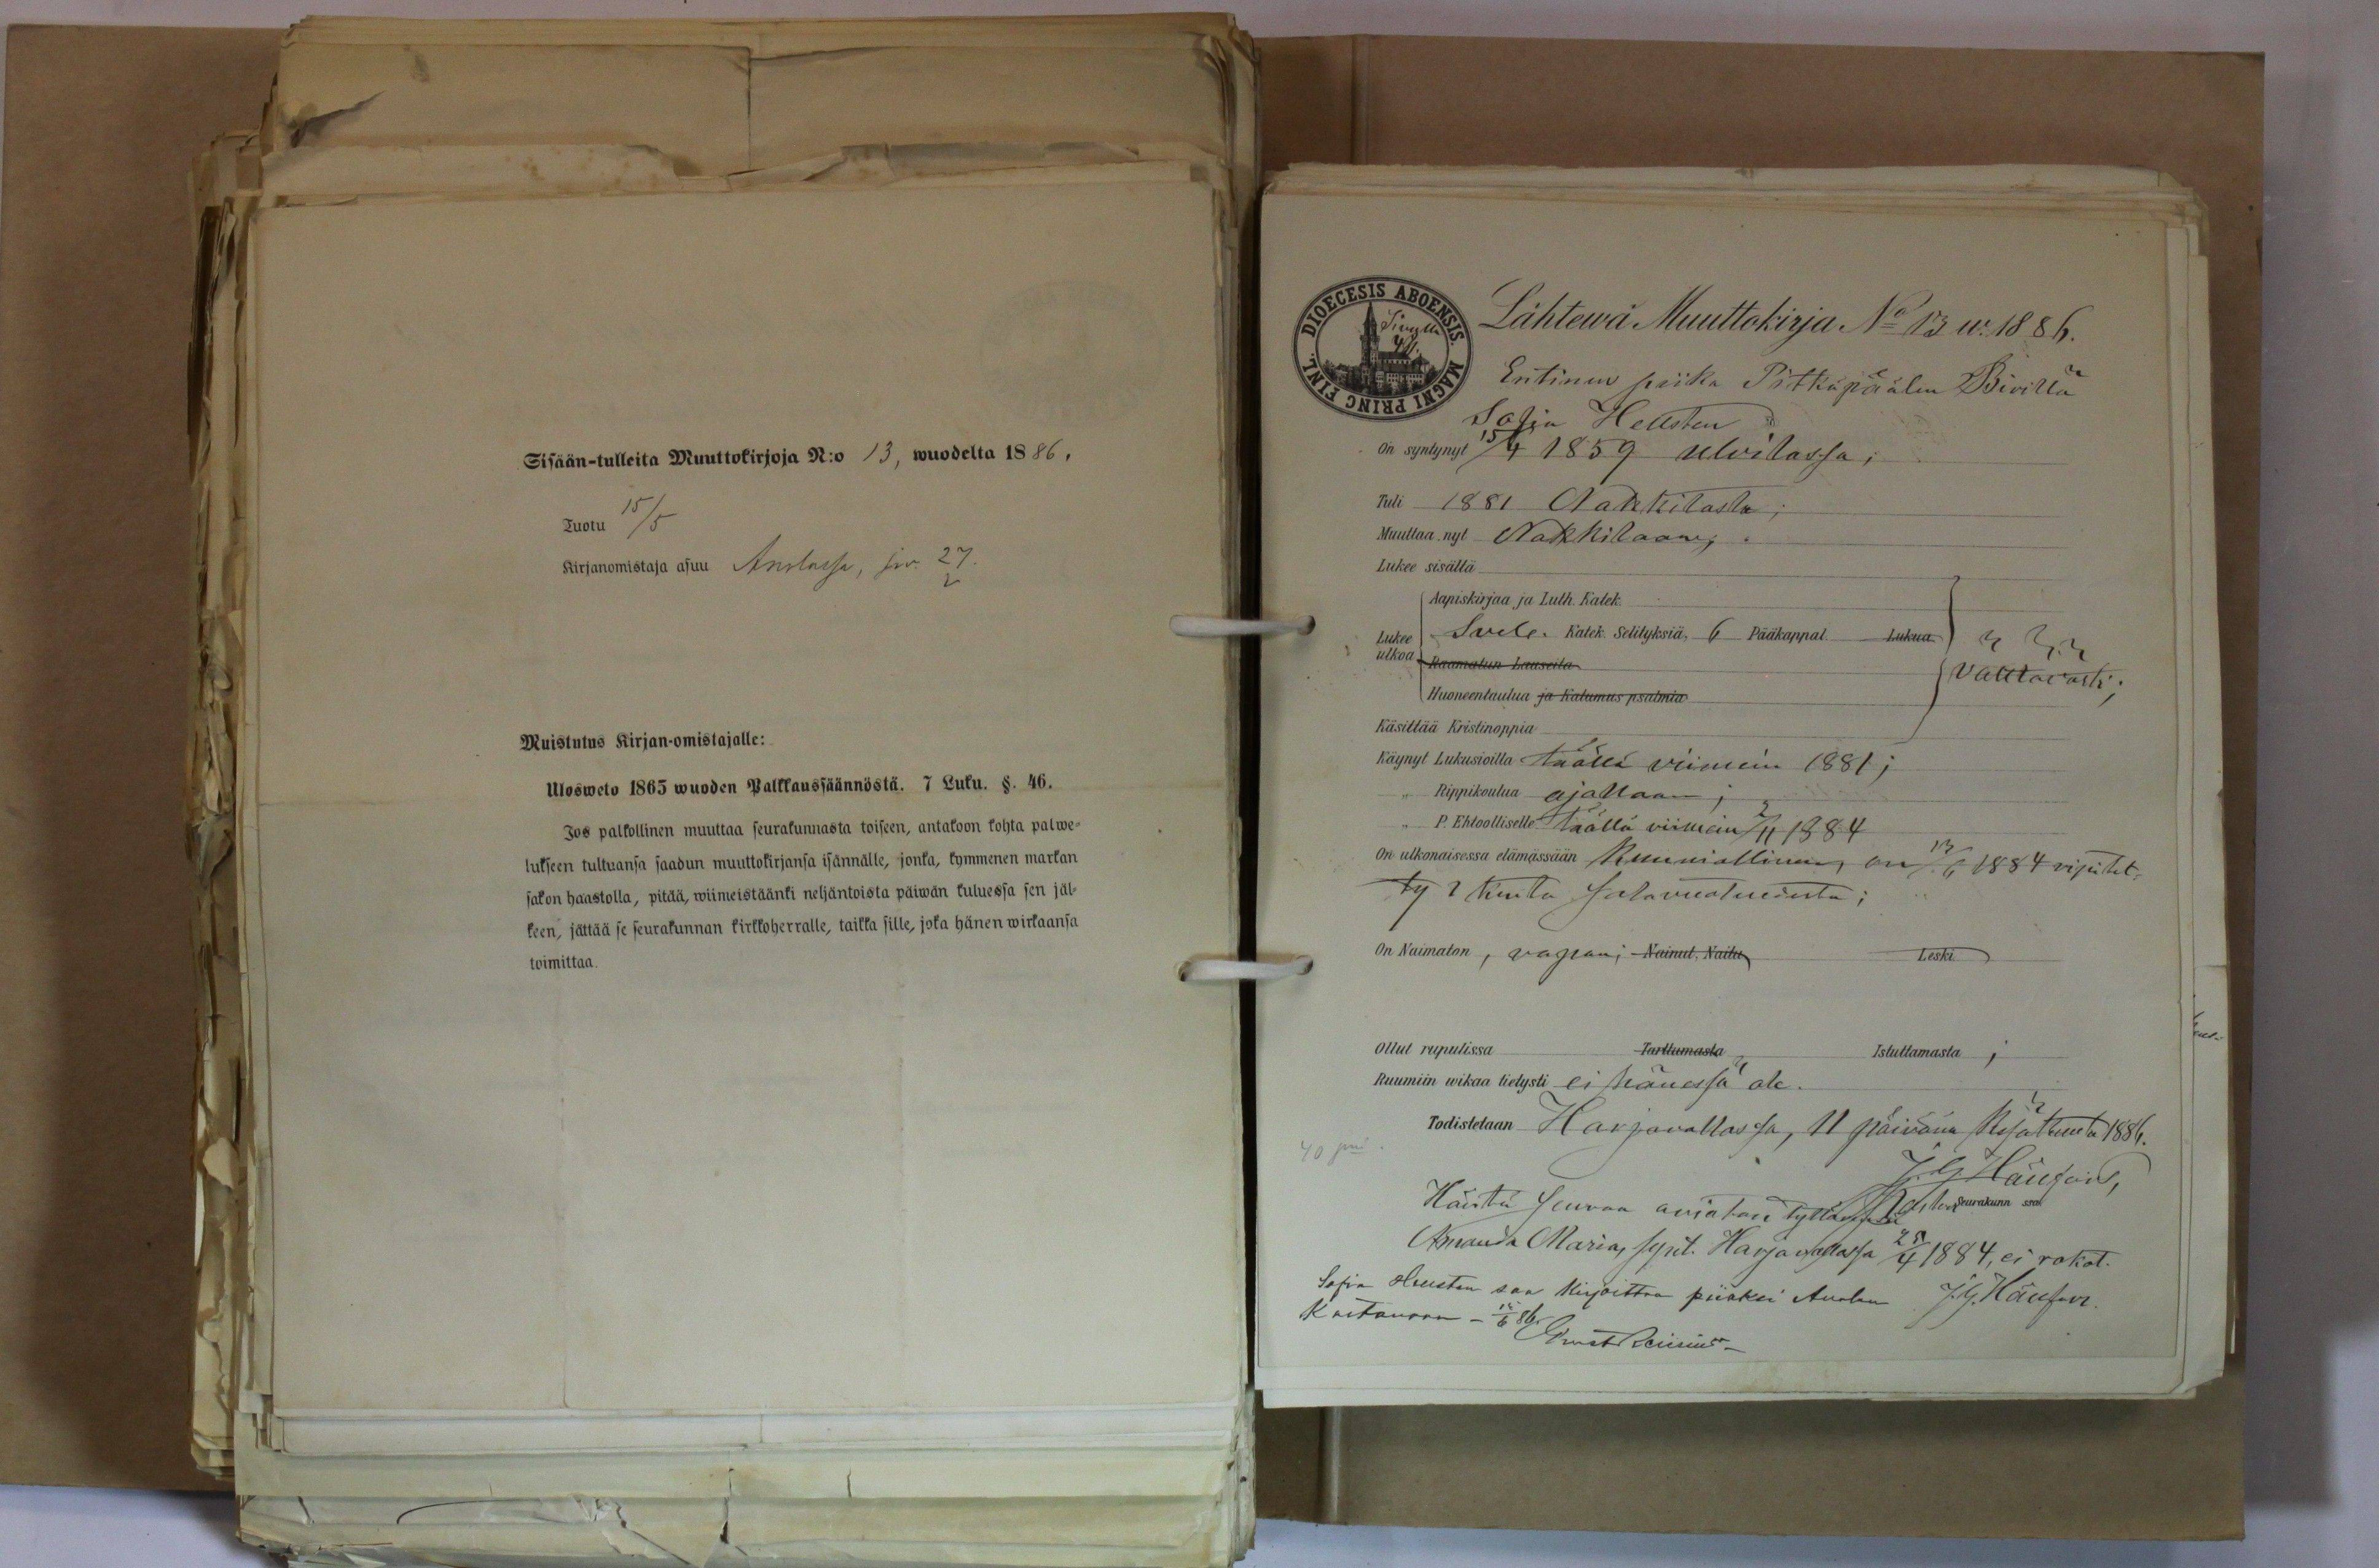 Sisään-tulleita Muuttokirjoja N:o 13, wuodelta 1886.
Tuotu 15/5
Kirjanomistaja asuu Anolassa, siv. 27.
Muistutus Kirjan-omistajalle:
Ulosweto 1865 wuoden Palkkaussäännöstä. 7 Luku. §. 46.
Jos palkollinen muuttaa seurakunnasta toiseen, antakoon kohta palwe-
lukseen tultuansa saadun muuttokirjansa isännälle, jonka, kymmenen markan
sakon haastolla, pitää, wiimeistäänki neljäntoista päiwän kuluessa sen jäl-
keen, jättää se seurakunnan kirkkoherralle, taikka sille, joka hänen wirkaansa
toimittaa.
DIOECESIS ABOENSIS. MAGNI PRINC FINL.
Lähtewä Muuttokirja No 13 w. 1886.
Entinen piika Pitkäpäälen
Sofia Hellsten
On syntynyt 15/4 1859 Ulvilassa;
Tuli 1881 Nakkilasta;
Muuttaa nyt Nakkilaan;
Lukee sisältä
Aapiskirjaa ja Luth. Katek.
Lukee ulkoa Svebe. Katek. Selityksiä, 6 Pääkappal. Lukua
Raamatun Lauseita
Huoneentaulua ja Katumus psalmia
välttävästi;
Käsittää Kristinoppia
Käynyt Lukusioilla täällä viimein 1881;
" Rippikoulua ajallaan;
" P. Ehtoolliselle täällä viimein 2/11 1884
On ulkonaisessa elämässään kunniallinen, on 13/6 1884 ripitet-
ty 1 kerta salavuoteudesta;
On Naimaton, vapaa; Nainut, Naitu Leski
Ollut rupulissa Tarttumasta Istuttamasta;
Ruumiin wikaa tietysti ei hänessä ole.
Todistetaan Harjavallassa, 11 päivänä Kesäkuuta 1886.
40 pni.
J. G. Hänfors,
Seurakunn ssa
Häntä seuraa aviotoin tyttärensä
Amanda Maria, synt. Harjavallassa 25/4 1884, ei rokot.
J. G. Hänfors.
Sofia Hellsten saa kirjoittaa piiaksi Anolan
Kartanoon - 15/6 86.
Ernst